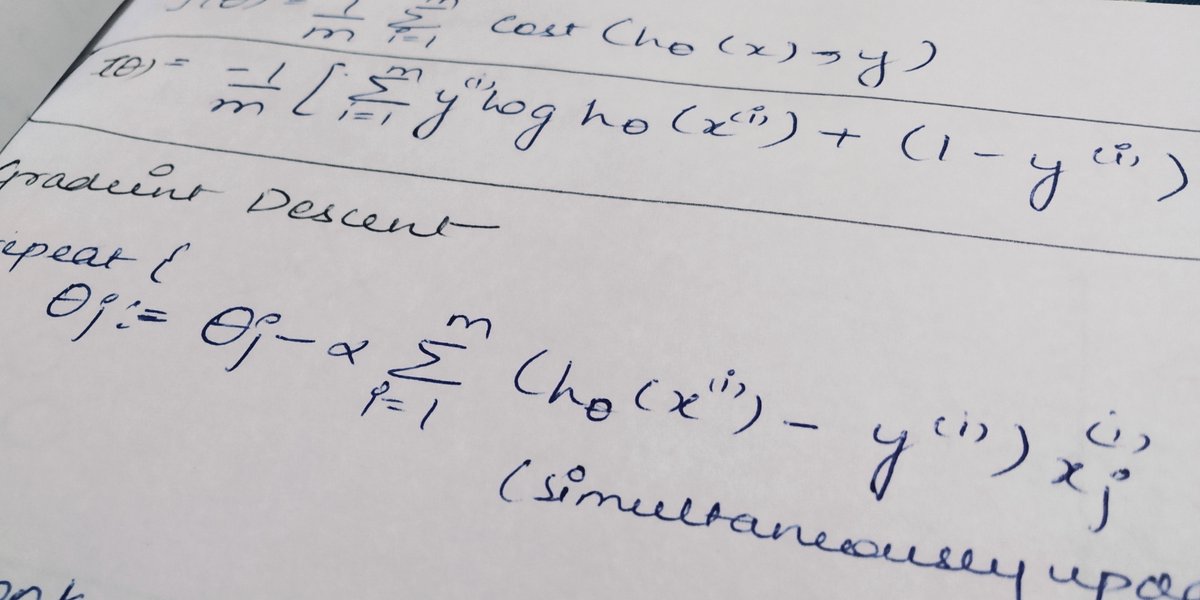 J(θ) = 1/m Σ_{i=1}^{m} Cost (hθ (x), y)
J(θ) = -1/m [ Σ_{i=1}^{m} y^{(i)} log hθ (x^{(i)}) + (1 - y^{(i)})
Gradient Descent
epeat {
θj := θj - α Σ_{i=1}^{m} (hθ (x^{(i)}) - y^{(i)}) xj^{(i)}
(simultaneously upda